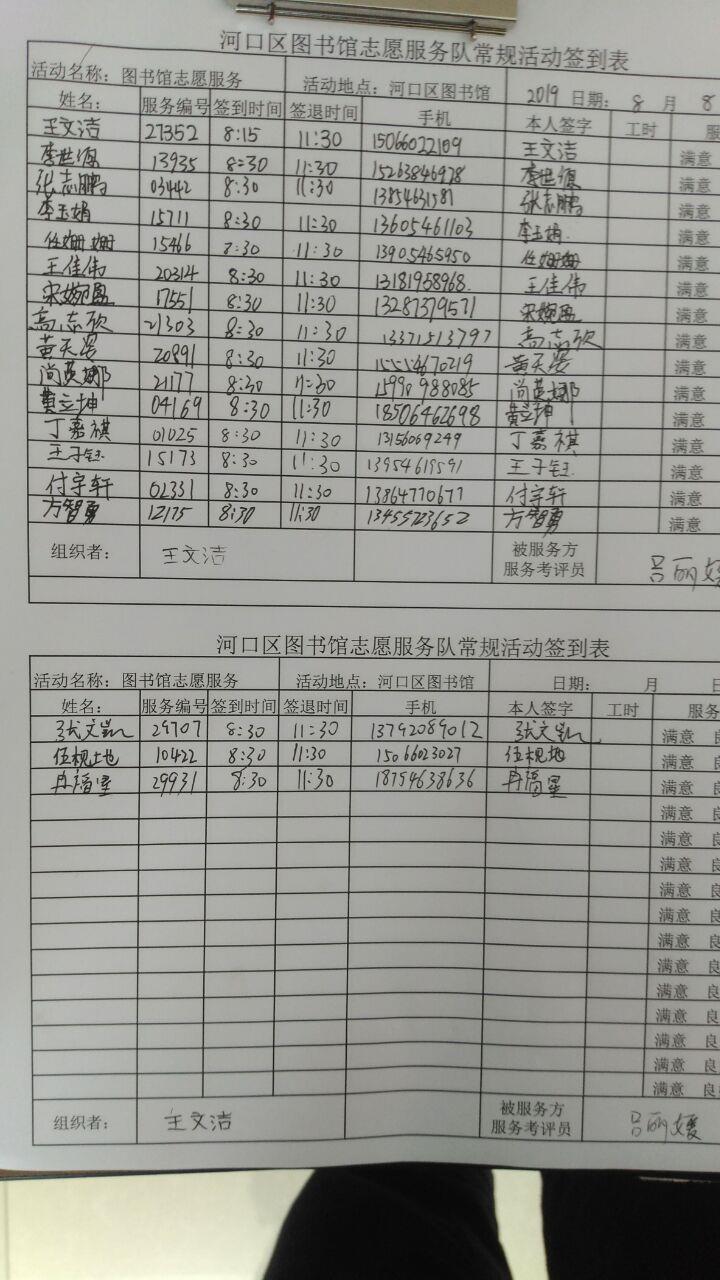 河口区图书馆志愿服务队常规活动签到表
活动名称：图书馆志愿服务 活动地点：河口区图书馆 2019 日期： 8 月 8
姓名： 服务编号 签到时间 签退时间 手机 本人签字 工时 服
王文洁 27352 8:15 11:30 15066022109 王文洁 满意
李世源 13935 8:30 11:30 15263846978 李世源 满意
张志鹏 03442 8:30 11:30 13854631581 张志鹏 满意
李玉娟 15711 8:30 11:30 13605461103 李玉娟 满意
任姗姗 15466 8:30 11:30 13905465950 任姗姗 满意
王佳伟 20314 8:30 11:30 13181958968 王佳伟 满意
宋婉盈 17551 8:30 11:30 13287379571 宋婉盈 满意
高志欣 21303 8:30 11:30 13371513797 高志欣 满意
黄天 20891 8:30 11:30 黄天 满意
尚英娜 21177 8:30 11:30 尚英娜 满意
黄立坤 04169 8:30 11:30 18506462698 黄立坤 满意
丁嘉祺 01025 8:30 11:30 13156069249 丁嘉祺 满意
王子钰 15173 8:30 11:30 13954619591 王子钰 满意
付宇轩 02331 8:30 11:30 13864770677 付宇轩 满意
方智勇 12175 8:30 11:30 13455723652 方智勇 满意
组织者： 王文洁 被服务方 服务考评员 吕丽媛
河口区图书馆志愿服务队常规活动签到表
活动名称：图书馆志愿服务 活动地点：河口区图书馆 日期： 月 日
姓名： 服务编号 签到时间 签退时间 手机 本人签字 工时 服务
张文凯 29707 8:30 11:30 13792089012 张文凯 满意 良
伍枧地 10422 8:30 11:30 15066023027 伍枧地 满意 良
冉福星 29931 8:30 11:30 18754638636 冉福星 满意 良
满意 良
满意 良
满意 良
满意 良
满意 良
满意 良
满意 良
满意 良
满意 良
满意 良
满意 良
满意 良
组织者： 王文洁 被服务方 服务考评员 吕丽媛